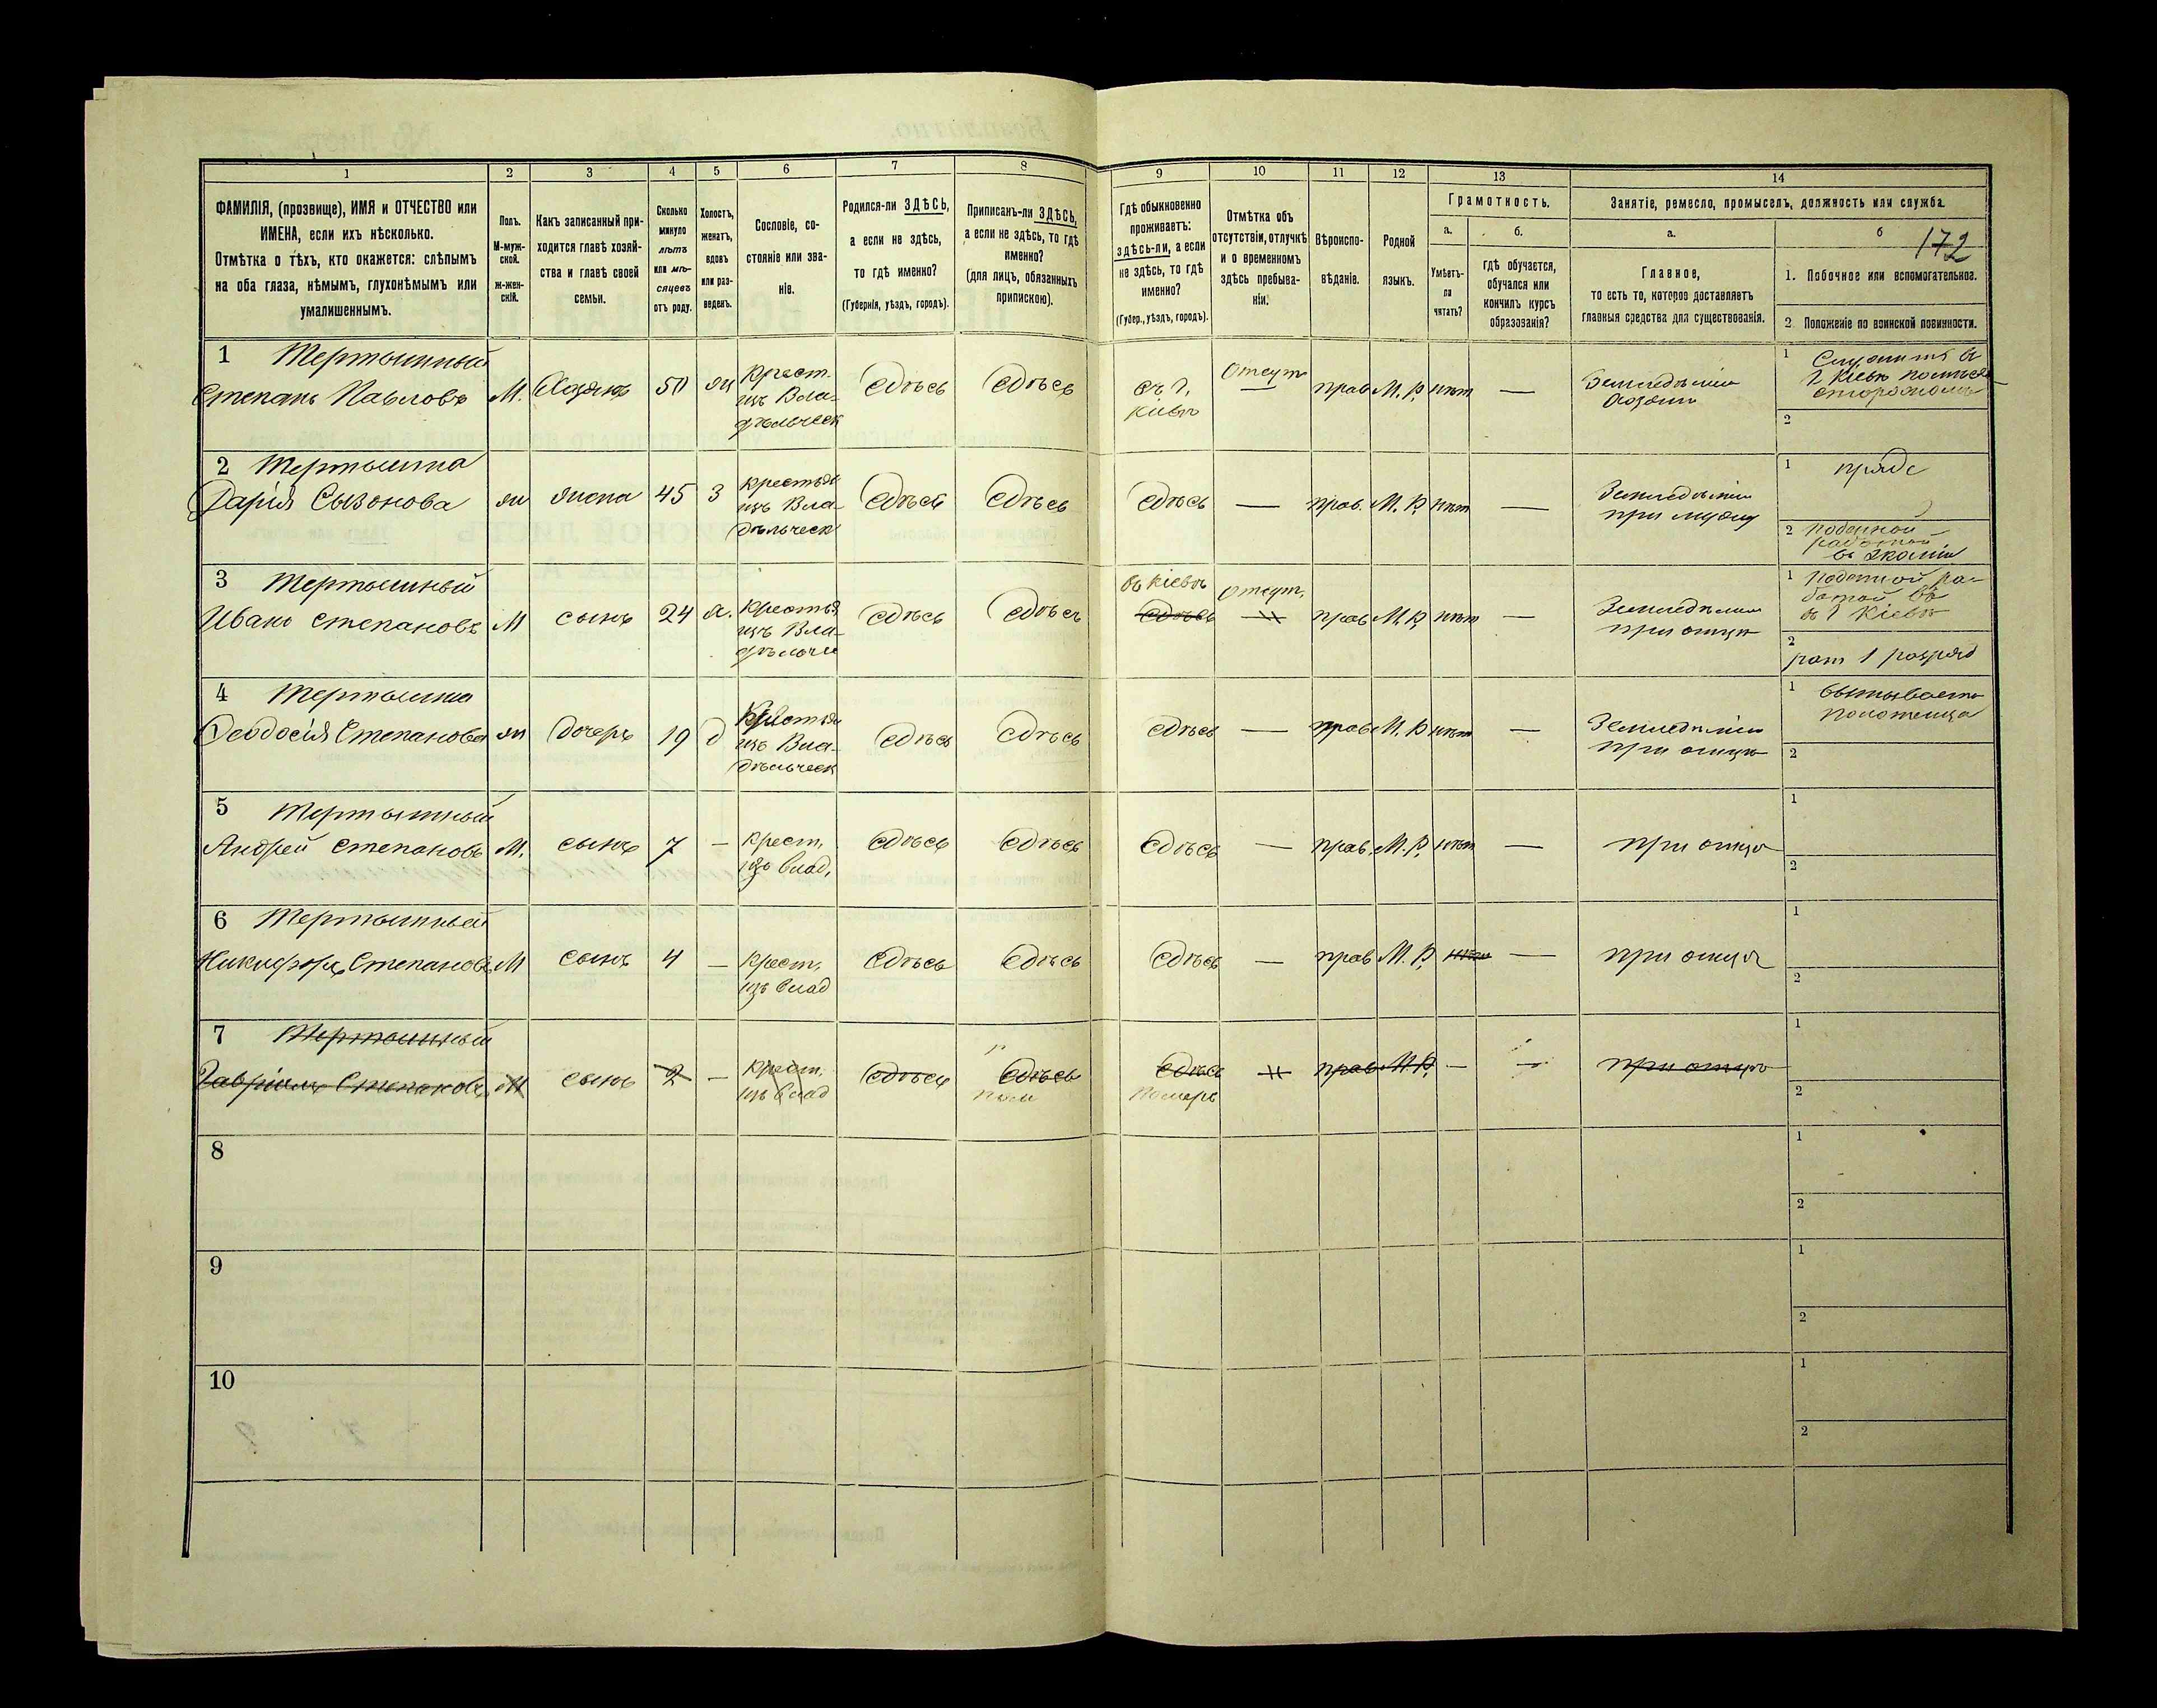 1 2 3 4 5 6 7 8 9 10 11 12 13 14
ФАМИЛІЯ, (прозвище), ИМЯ и ОТЧЕСТВО или
ИМЕНА, если ихъ нѣсколько.
Отмѣтка о тѣхъ, кто окажется: слѣпымъ
на оба глаза, нѣмымъ, глухонѣмымъ или
умалишеннымъ.
Полъ.
М-муж-
ской.
ж-жен-
скій.
Какъ записанный при-
ходится главѣ хозяй-
ства и главѣ своей
семьи.
Сколько
минуло
лѣтъ
или мѣ-
сяцевъ
отъ роду.
Холостъ,
женатъ,
вдовъ
или раз-
веденъ.
Сословіе, со-
стояніе или зва-
ніе.
Родился-ли ЗДѢСЬ,
а если не здѣсь,
то гдѣ именно?
(Губернія, уѣздъ, городъ).
Приписанъ-ли ЗДѢСЬ,
а если не здѣсь, то гдѣ
именно?
(для лицъ, обязанныхъ
припискою).
Гдѣ обыкновенно
проживаетъ:
здѣсь-ли, а если
не здѣсь, то гдѣ
именно?
(Губер., уѣздъ, городъ).
Отмѣтка объ
отсутствіи, отлучкѣ
и о временномъ
здѣсь пребыва-
ніи.
Вѣроиспо-
вѣданіе.
Родной
языкъ.
Грамотность.
а.
Умѣетъ-
ли
читать?
б.
гдѣ обучается,
обучался или
кончилъ курсъ
образованія?
Занятіе, ремесло, промыселъ, должность или служба.
а.
Главное,
то есть то, которое доставляетъ
главныя средства для существованія.
б
172
1. Побочное или вспомогательное.
2. Положеніе по воинской повинности.
1 Тертышный
Степанъ Павловъ М. Хозяинъ 50 ж
Крест.
изъ Вла-
дѣльческ
Здѣсь Здѣсь
въ г.
Кіевѣ
Отсут
прав М. Р. нѣтъ —
Земледѣліе
Хозяинъ
1
2
2 Тертышна
Дарія Сызонова ж жена 45 З
Крестьян
изъ Вла-
дѣльческ
Здѣсь Здѣсь Здѣсь — прав. М. Р. нѣтъ —
Земледѣліе
при мужу
1 пряде
2 поденной
работой
въ экономіи
3 Тертышный
Иванъ Степановъ М сынъ 24 х.
Крестья
изъ Вла-
дѣльче
Здѣсь Здѣсь
въ Кіевѣ
Здѣсь
отсут.
прав М. Р. нѣтъ —
Земледѣліе
при отцѣ
1 Поденной ра-
ботой
въ г Кіевѣ
2
рат 1 разряд
4 Тертышна
Феодосія Степанова ж дочерь 19 д
Крестьян
изъ Вла-
дѣльческ
Здѣсь Здѣсь Здѣсь — прав М. Р нѣтъ —
Земледѣліе
при отцѣ
1
2
5 Тертышный
Андрей Степановъ М. сынъ 7 —
крест.
изъ влад.
Здѣсь Здѣсь Здѣсь — прав. М. Р. нѣтъ — при отцѣ
1
2
6 Тертышный
Никифоръ Степановъ М сынъ 4 —
крест.
изъ влад
Здѣсь Здѣсь Здѣсь — прав М. Р. нѣтъ — при отцѣ
1
2
7 Тертышный
Гавріилъ Степановъ М сынъ 2 —
крест.
изъ влад
Здѣсь Здѣсь
Здѣсь
Померъ
прав М. Р. — — при отцѣ
1
2
8
1
2
9
1
2
10
1
2